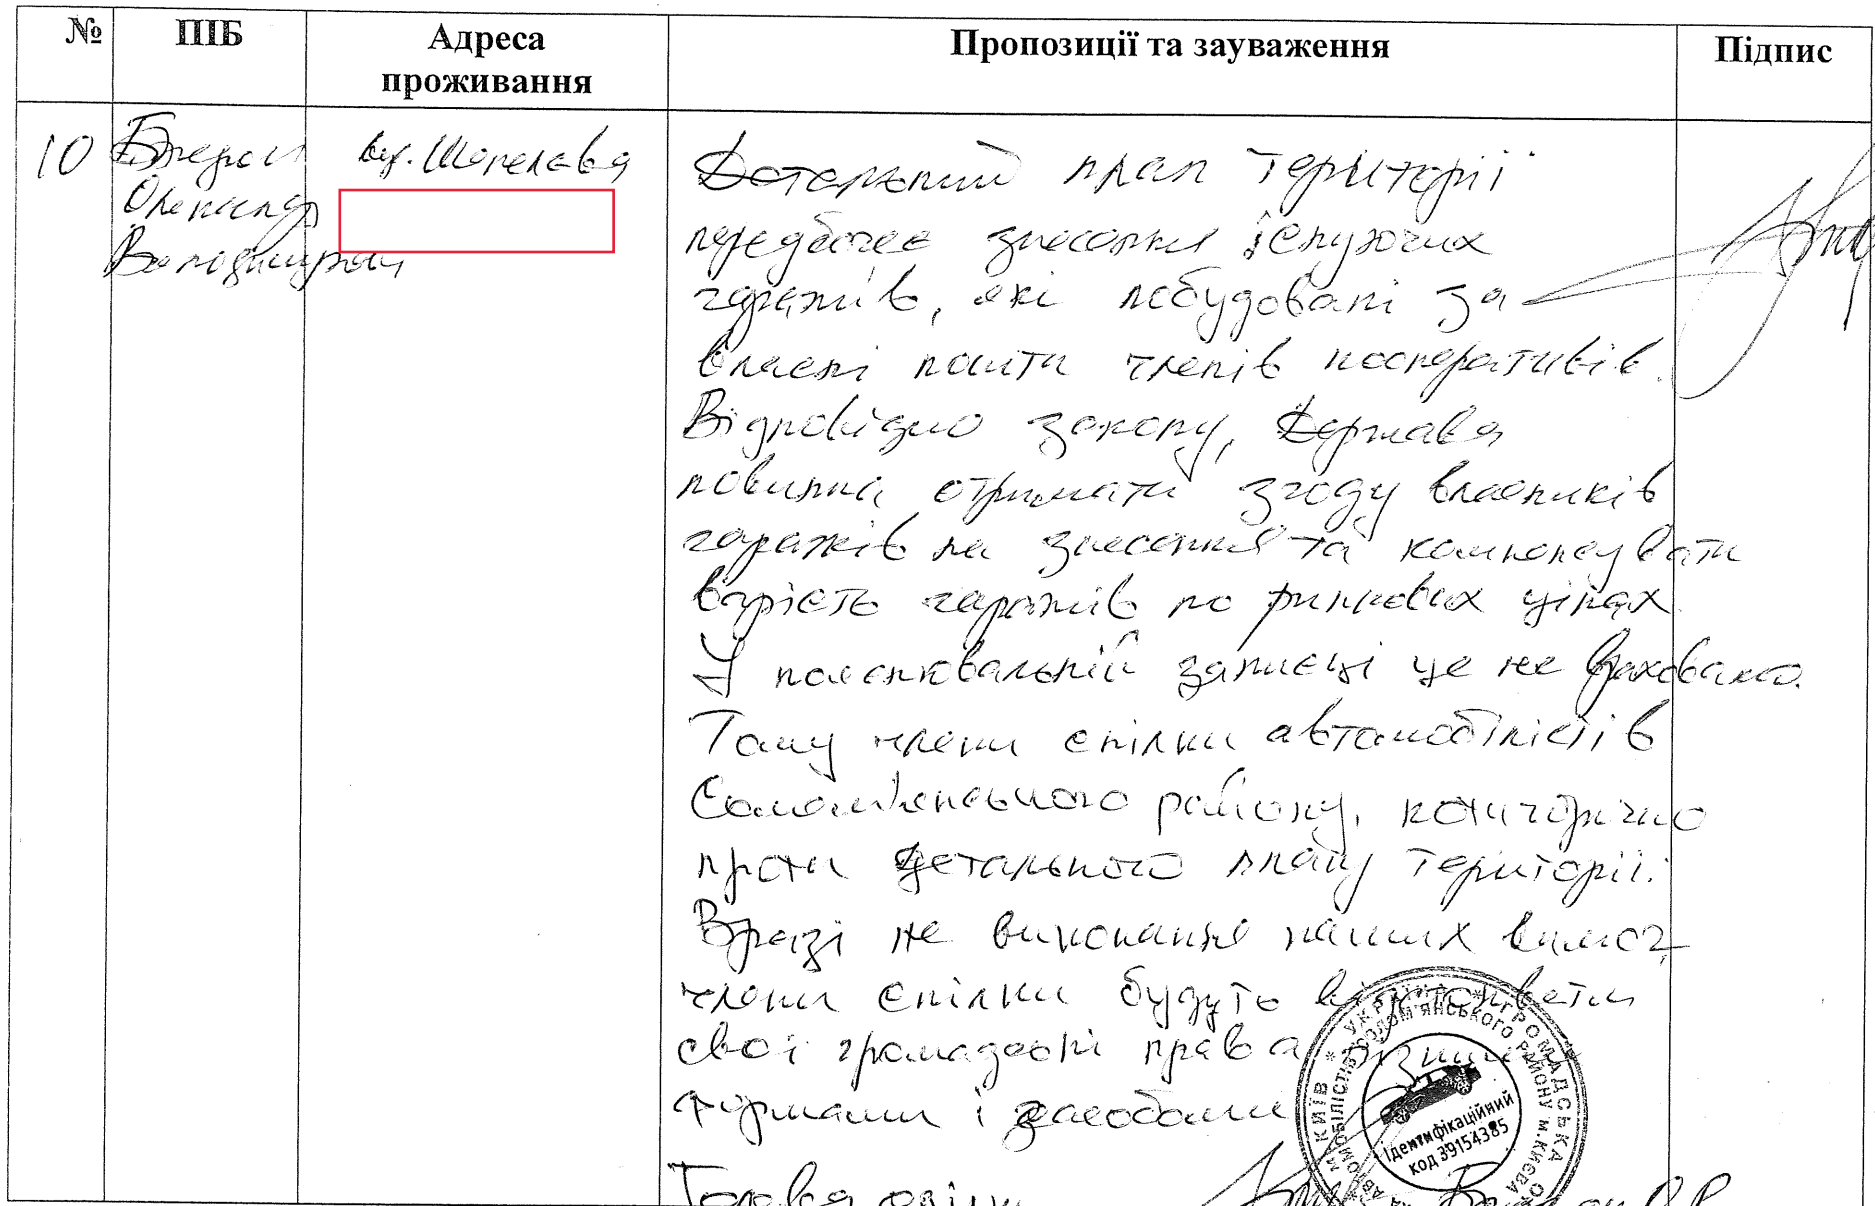 № ПІБ Адреса проживання Пропозиції та зауваження Підпис
10
Олександр
Володимирович
вул. Шепелєва
Детальний план території
передбачає знесення існуючих
гаражів, які побудовані за
власні кошти членів кооперативів.
Відповідно закону, Держава
повинна отримати згоду власників
гаражів на знесення та компенсувати
вартість гаражів по ринкових цінах
У пояснювальній записці це не враховано.
Тому члени спілки автомобілістів
Солом'янського району, категорично
проти детального плану території.
В разі не виконання наших вимог,
члени спілки будуть відстоювати
свої громадські права різними
формами і засобами
Голова спілки
* УКРАЇНА * ГРОМАДСЬКА
М. КИЇВ
АВТОМОБІЛІСТІВ СОЛОМ'ЯНСЬКОГО РАЙОНУ м.КИЄВА
Ідентифікаційний
код 39154385